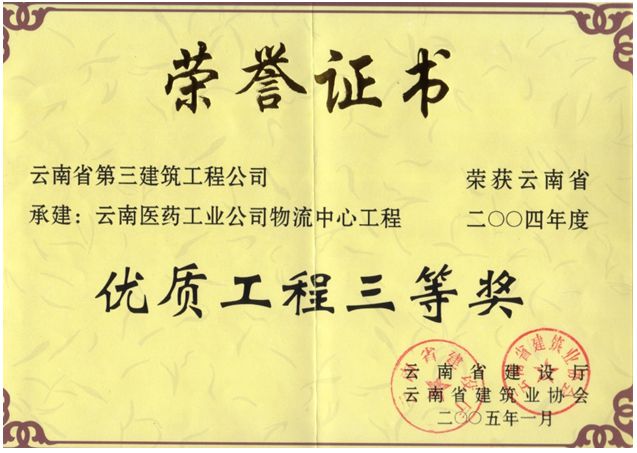 荣誉证书
云南省第三建筑工程公司 荣获云南省
承建：云南医药工业公司物流中心工程 二〇〇四年度
优质工程三等奖
云南省建设厅
云南省建筑业协会
二〇〇五年一月
云南省建筑业协会